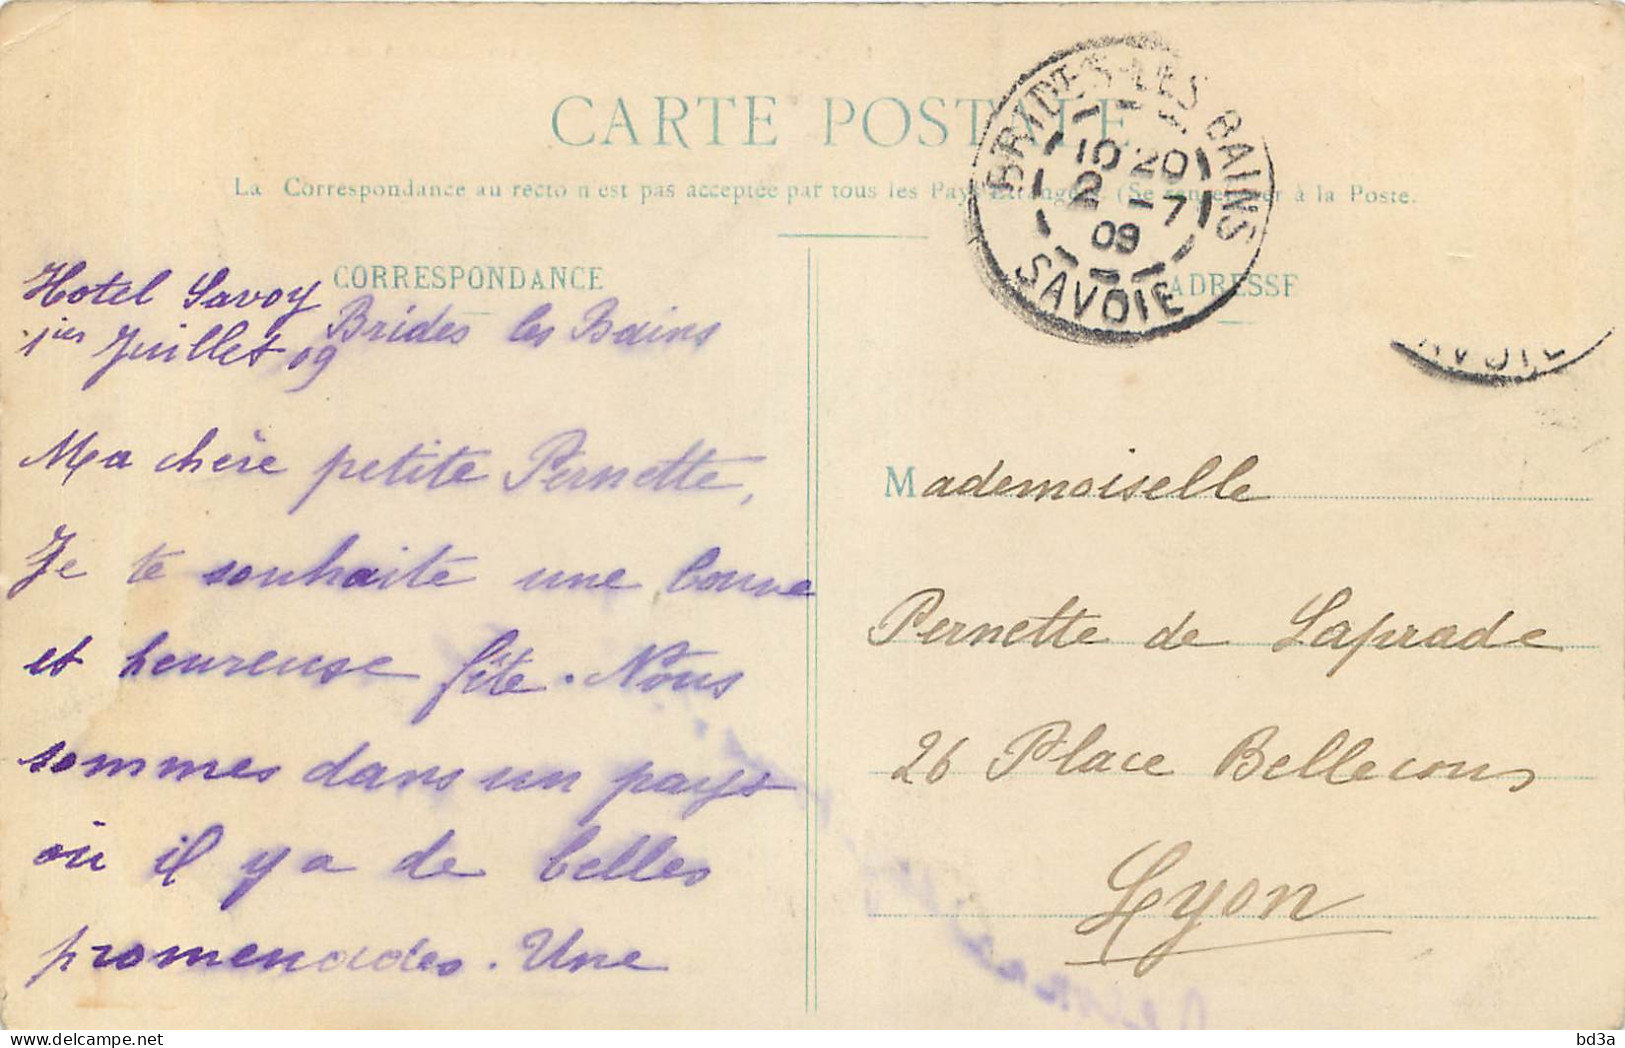 CARTE POSTALE
La Correspondance au recto n'est pas acceptée par tous les Pays Etrangers (Se renseigner à la Poste.
BRIDES-LES-BAINS
10 20
2 -7
09
SAVOIE
CORRESPONDANCE
ADRESSE
Hotel Savoy
Brides les Bains
1ier Juillet 09
AVOIE
Ma chère petite Pernette,
Je te souhaite une bonne
et heureuse fête. Nous
sommes dans un pays
où il y a de belles
promenades. Une
Mademoiselle
Pernette de Laprade
26 Place Bellecour
Lyon
delcampe.net
bd3a